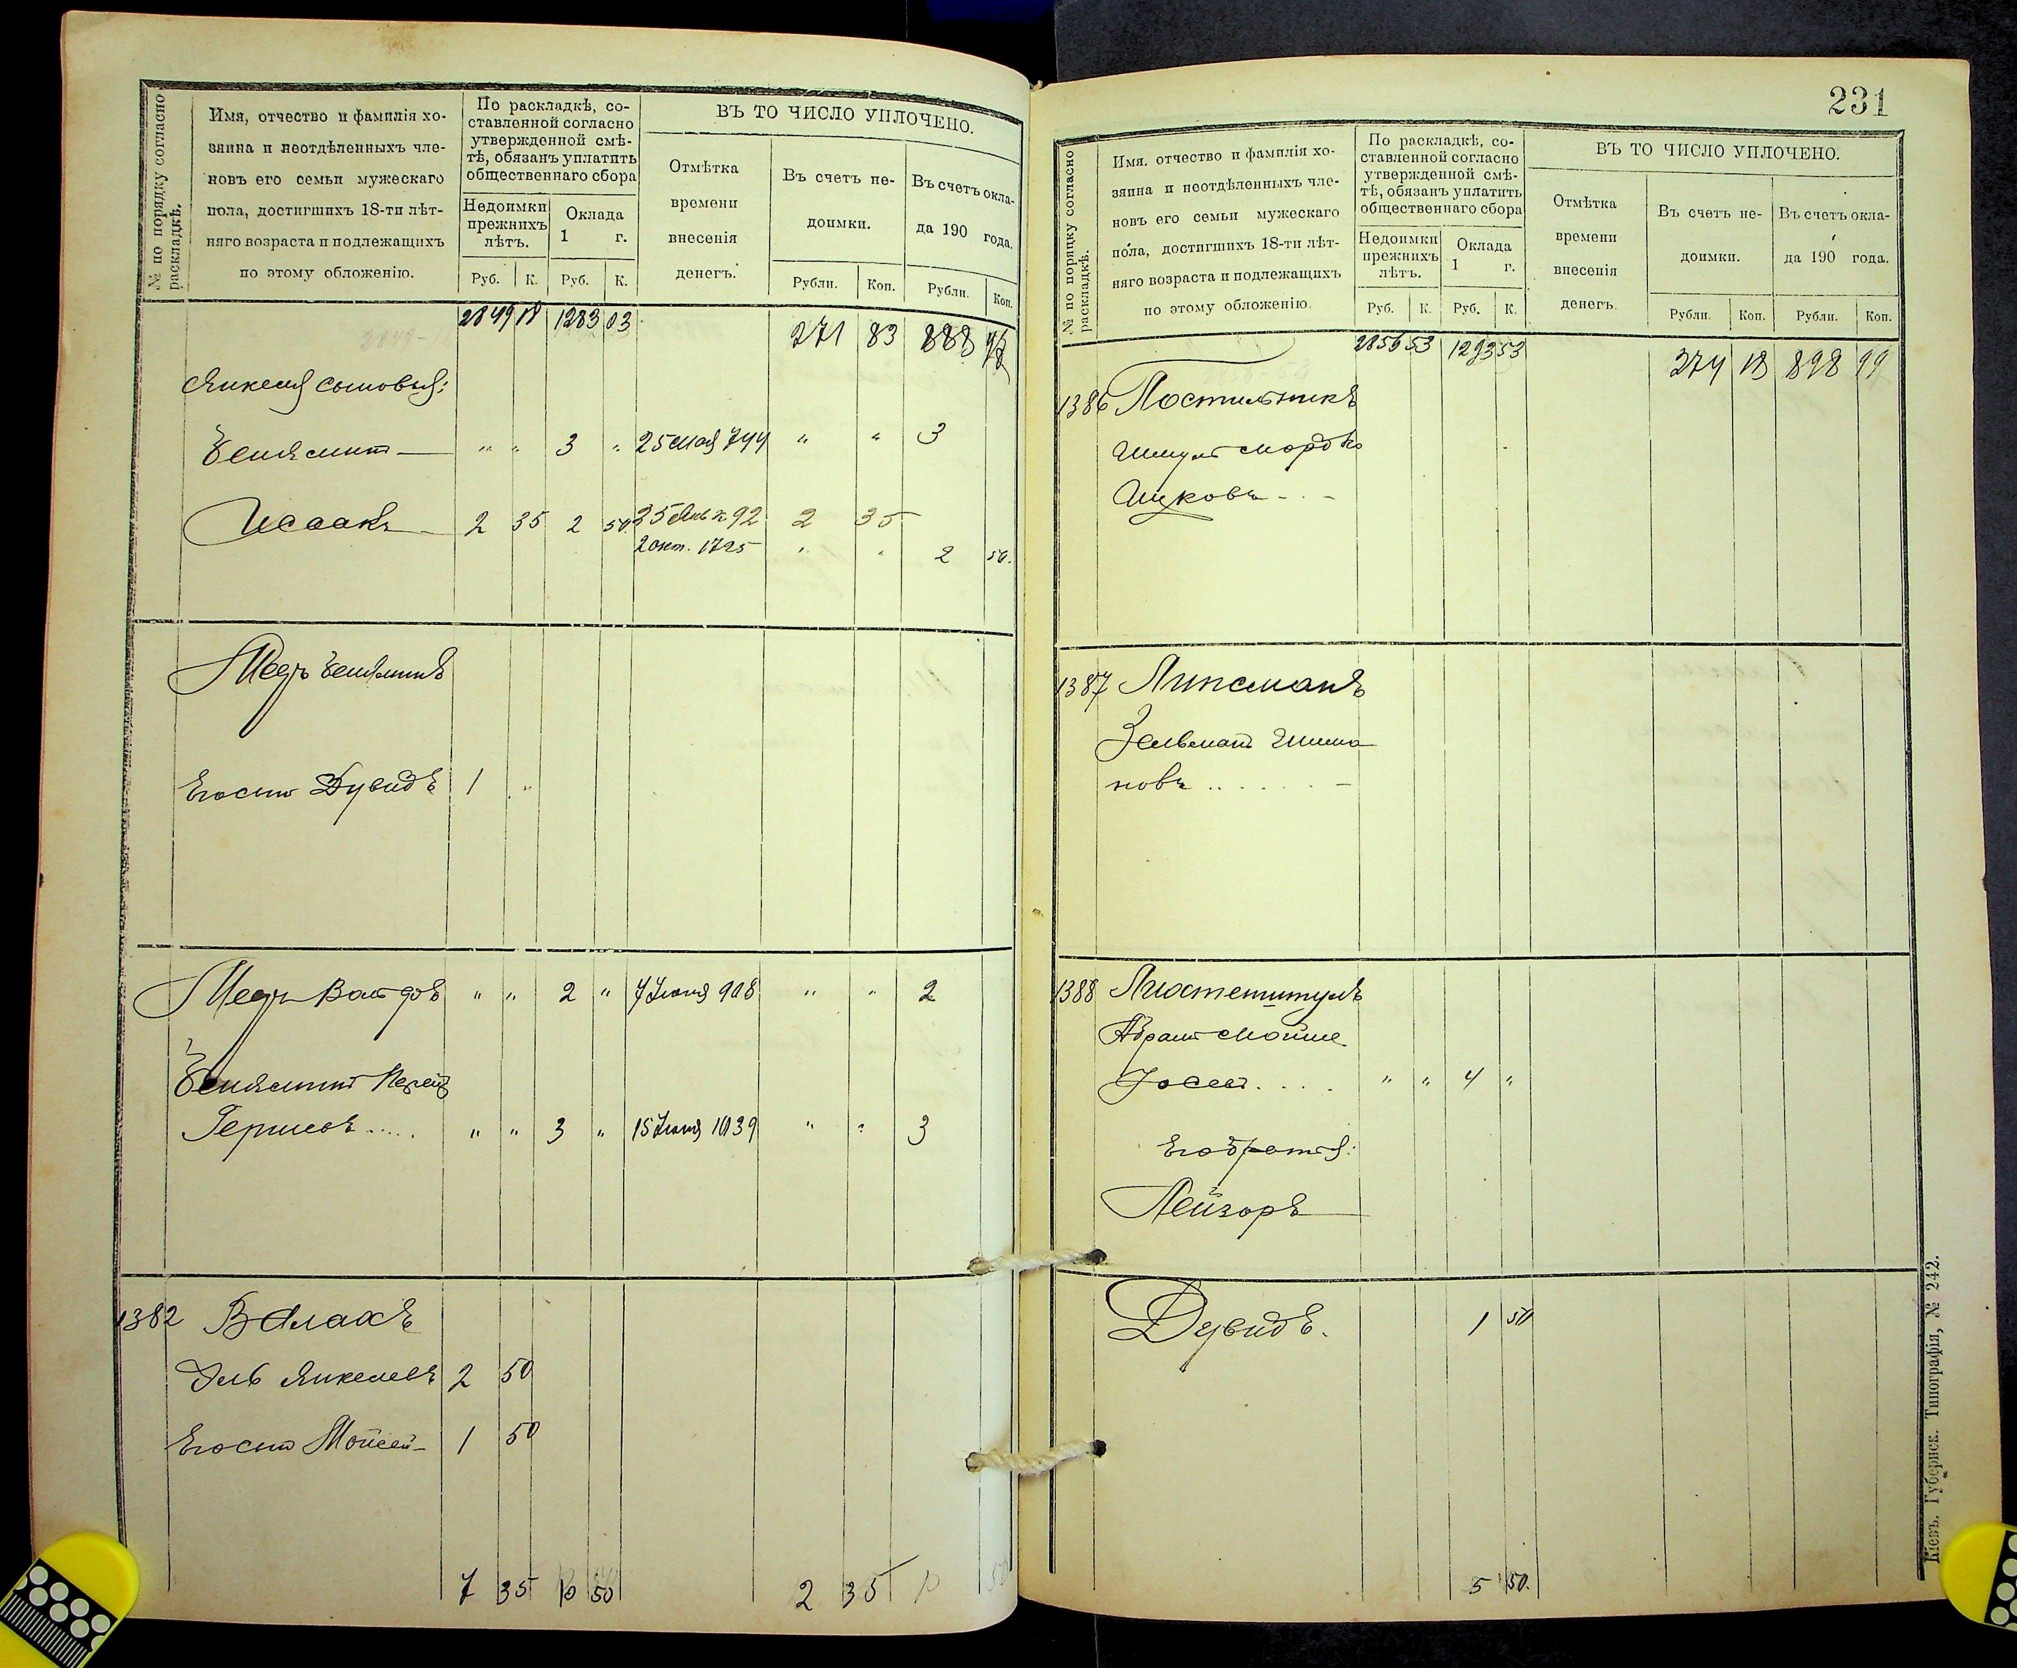 № по порядку согласно раскладкѣ.
Имя, отчество и фамилія хо-
зяина и неотдѣленныхъ чле-
новъ его семьи мужескаго
пола, достигшихъ 18-ти лѣт-
няго возраста и подлежащихъ
по этому обложенію.
По раскладкѣ, со-
ставленной согласно
утвержденной смѣ-
тѣ, обязанъ уплатить
общественнаго сбора
Недоимки
прежнихъ
лѣтъ.
Оклада
1 г.
Руб. К. Руб. К.
ВЪ ТО ЧИСЛО УПЛОЧЕНО.
Отмѣтка
времени
внесенія
денегъ.
Въ счетъ не-
доимки.
Въ счетъ окла-
да 190 года.
Рубли. Коп. Рубли. Коп.
2849 18 1283 03 271 83 888
Янкеля сыновья:
Бениаминъ " " 3 " 25 Мая 744 " " 3
Исаакъ 2 35 2 50 92 2 35
2 окт. 1725 " " 2 50.
Его сынъ Дувидъ 1 "
" " 2 " 7 Іюня 908 " " 2
Бениаминъ
Гершковъ ..... " " 3 " 15 Іюня 1039 " " 3
1382 Валахъ
Эль Янкелевъ 2 50
Его сынъ Мойсей 1 50
7 35 10 50 2 35 10 50
231
№ по порядку согласно раскладкѣ.
Имя, отчество и фамилія хо-
зяина и неотдѣленныхъ чле-
новъ его семьи мужескаго
пола, достигшихъ 18-ти лѣт-
няго возраста и подлежащихъ
по этому обложенію.
По раскладкѣ, со-
ставленной согласно
утвержденной смѣ-
тѣ, обязанъ уплатить
общественнаго сбора
Недоимки
прежнихъ
лѣтъ.
Оклада
1 г.
Руб. К. Руб. К.
ВЪ ТО ЧИСЛО УПЛОЧЕНО.
Отмѣтка
времени
внесенія
денегъ.
Въ счетъ не-
доимки.
Въ счетъ окла-
да 190 года.
Рубли. Коп. Рубли. Коп.
2856 53 1293 53 274 18 898 99
1386 Постильникъ
Шмуль Мордко
Ицковъ - . -
1387 Липсманъ
Зельманъ Шима
новъ . . . . . . -
1388
Абрамъ Мойше
Іосел. . . . " " 4 "
Его братья:
Лейзоръ
Дувидъ. 1 50
5 50.
Кіевъ. Губернск. Типографія, № 242.